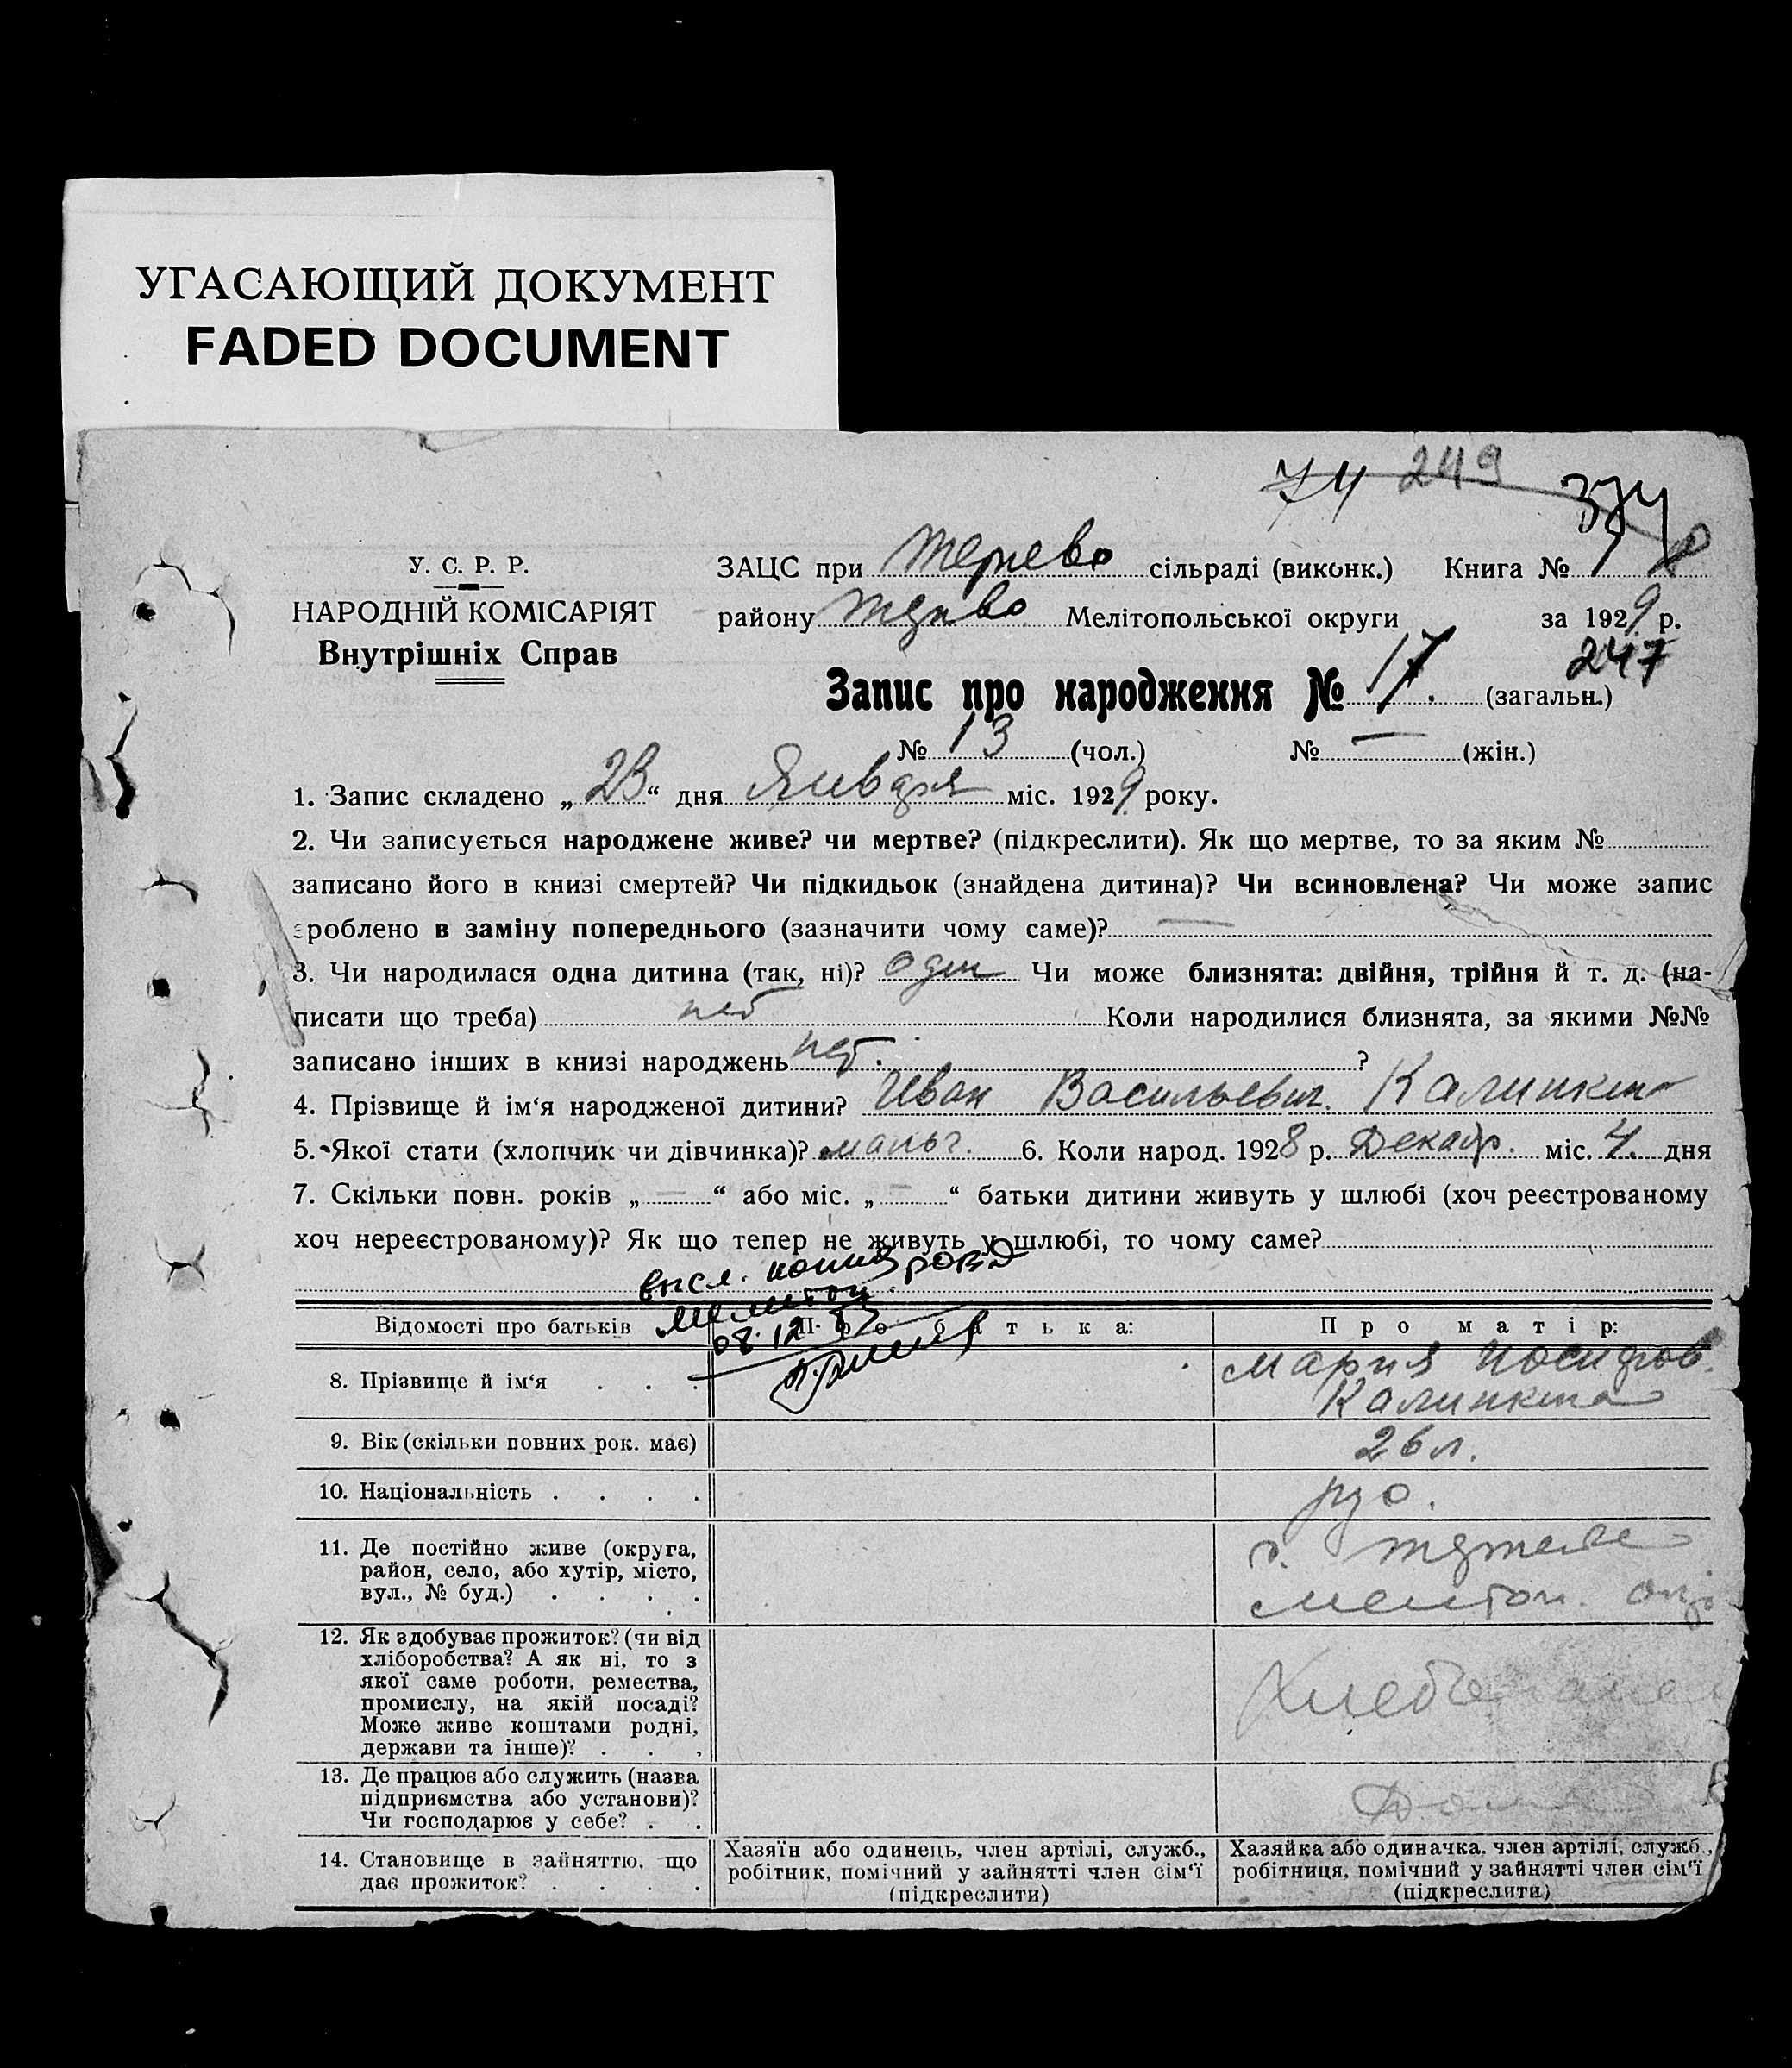 УГАСАЮЩИЙ ДОКУМЕНТ
FADED DOCUMENT
74 249 374
У. С. Р. Р.
НАРОДНІЙ КОМІСАРІЯТ
Внутрішніх Справ
ЗАЦС при сільраді (виконк.) Книга № 1
району Мелітопольської округи за 1929 р.
247
Запис про народження № 17. (загальн.)
№ 13 (чол.) № — (жін.)
1. Запис складено „23“ дня Января міс. 1929 року.
2. Чи записується народжене живе? чи мертве? (підкреслити). Як що мертве, то за яким №
записано його в книзі смертей? Чи підкидьок (знайдена дитина)? Чи всиновлена? Чи може запис
зроблено в заміну попереднього (зазначити чому саме)? —
3. Чи народилася одна дитина (так, ні)? один Чи може близнята: двійня, трійня й т. д. (на-
писати що треба) нет Коли народилися близнята, за якими №№
записано інших в книзі народжень нет. ?
4. Прізвище й ім‘я народженої дитини? Иван Васильевич. Калинкин
5. Якої стати (хлопчик чи дівчинка)? мальч. 6. Коли народ. 1928 р. Декабр. міс. 4. дня
7. Скільки повн. років „ — “ або міс. „ — “ батьки дитини живуть у шлюбі (хоч реєстрованому
хоч нереєстрованому)? Як що тепер не живуть у шлюбі, то чому саме?
высл. копия
08.12
Відомості про батьків Про батька: Про матір:
8. Прізвище й ім‘я . . . Мария Иосифов.
Калинкина
9. Вік (скільки повних рок. має) 26 л.
10. Національність . . . . рус.
11. Де постійно живе (округа,
район, село, або хутір, місто,
вул., № буд.) . . . .
с.
Мелитоп. окр
12. Як здобуває прожиток? (чи від
хліборобства? А як ні, то з
якої саме роботи, ремества,
промислу, на якій посаді?
Може живе коштами родні,
держави та інше)? . . .
13. Де працює або служить (назва
підприємства або установи)?
Чи господарює у себе? . .
Дома
14. Становище в зайняттю, що
дає прожиток? . . . .
Хазяїн або одинець, член артілі, служб.,
робітник, помічний у зайнятті член сім‘ї
(підкреслити)
Хазяйка або одиначка, член артілі, служб.,
робітниця, помічний у зайнятті член сім‘ї
(підкреслити)